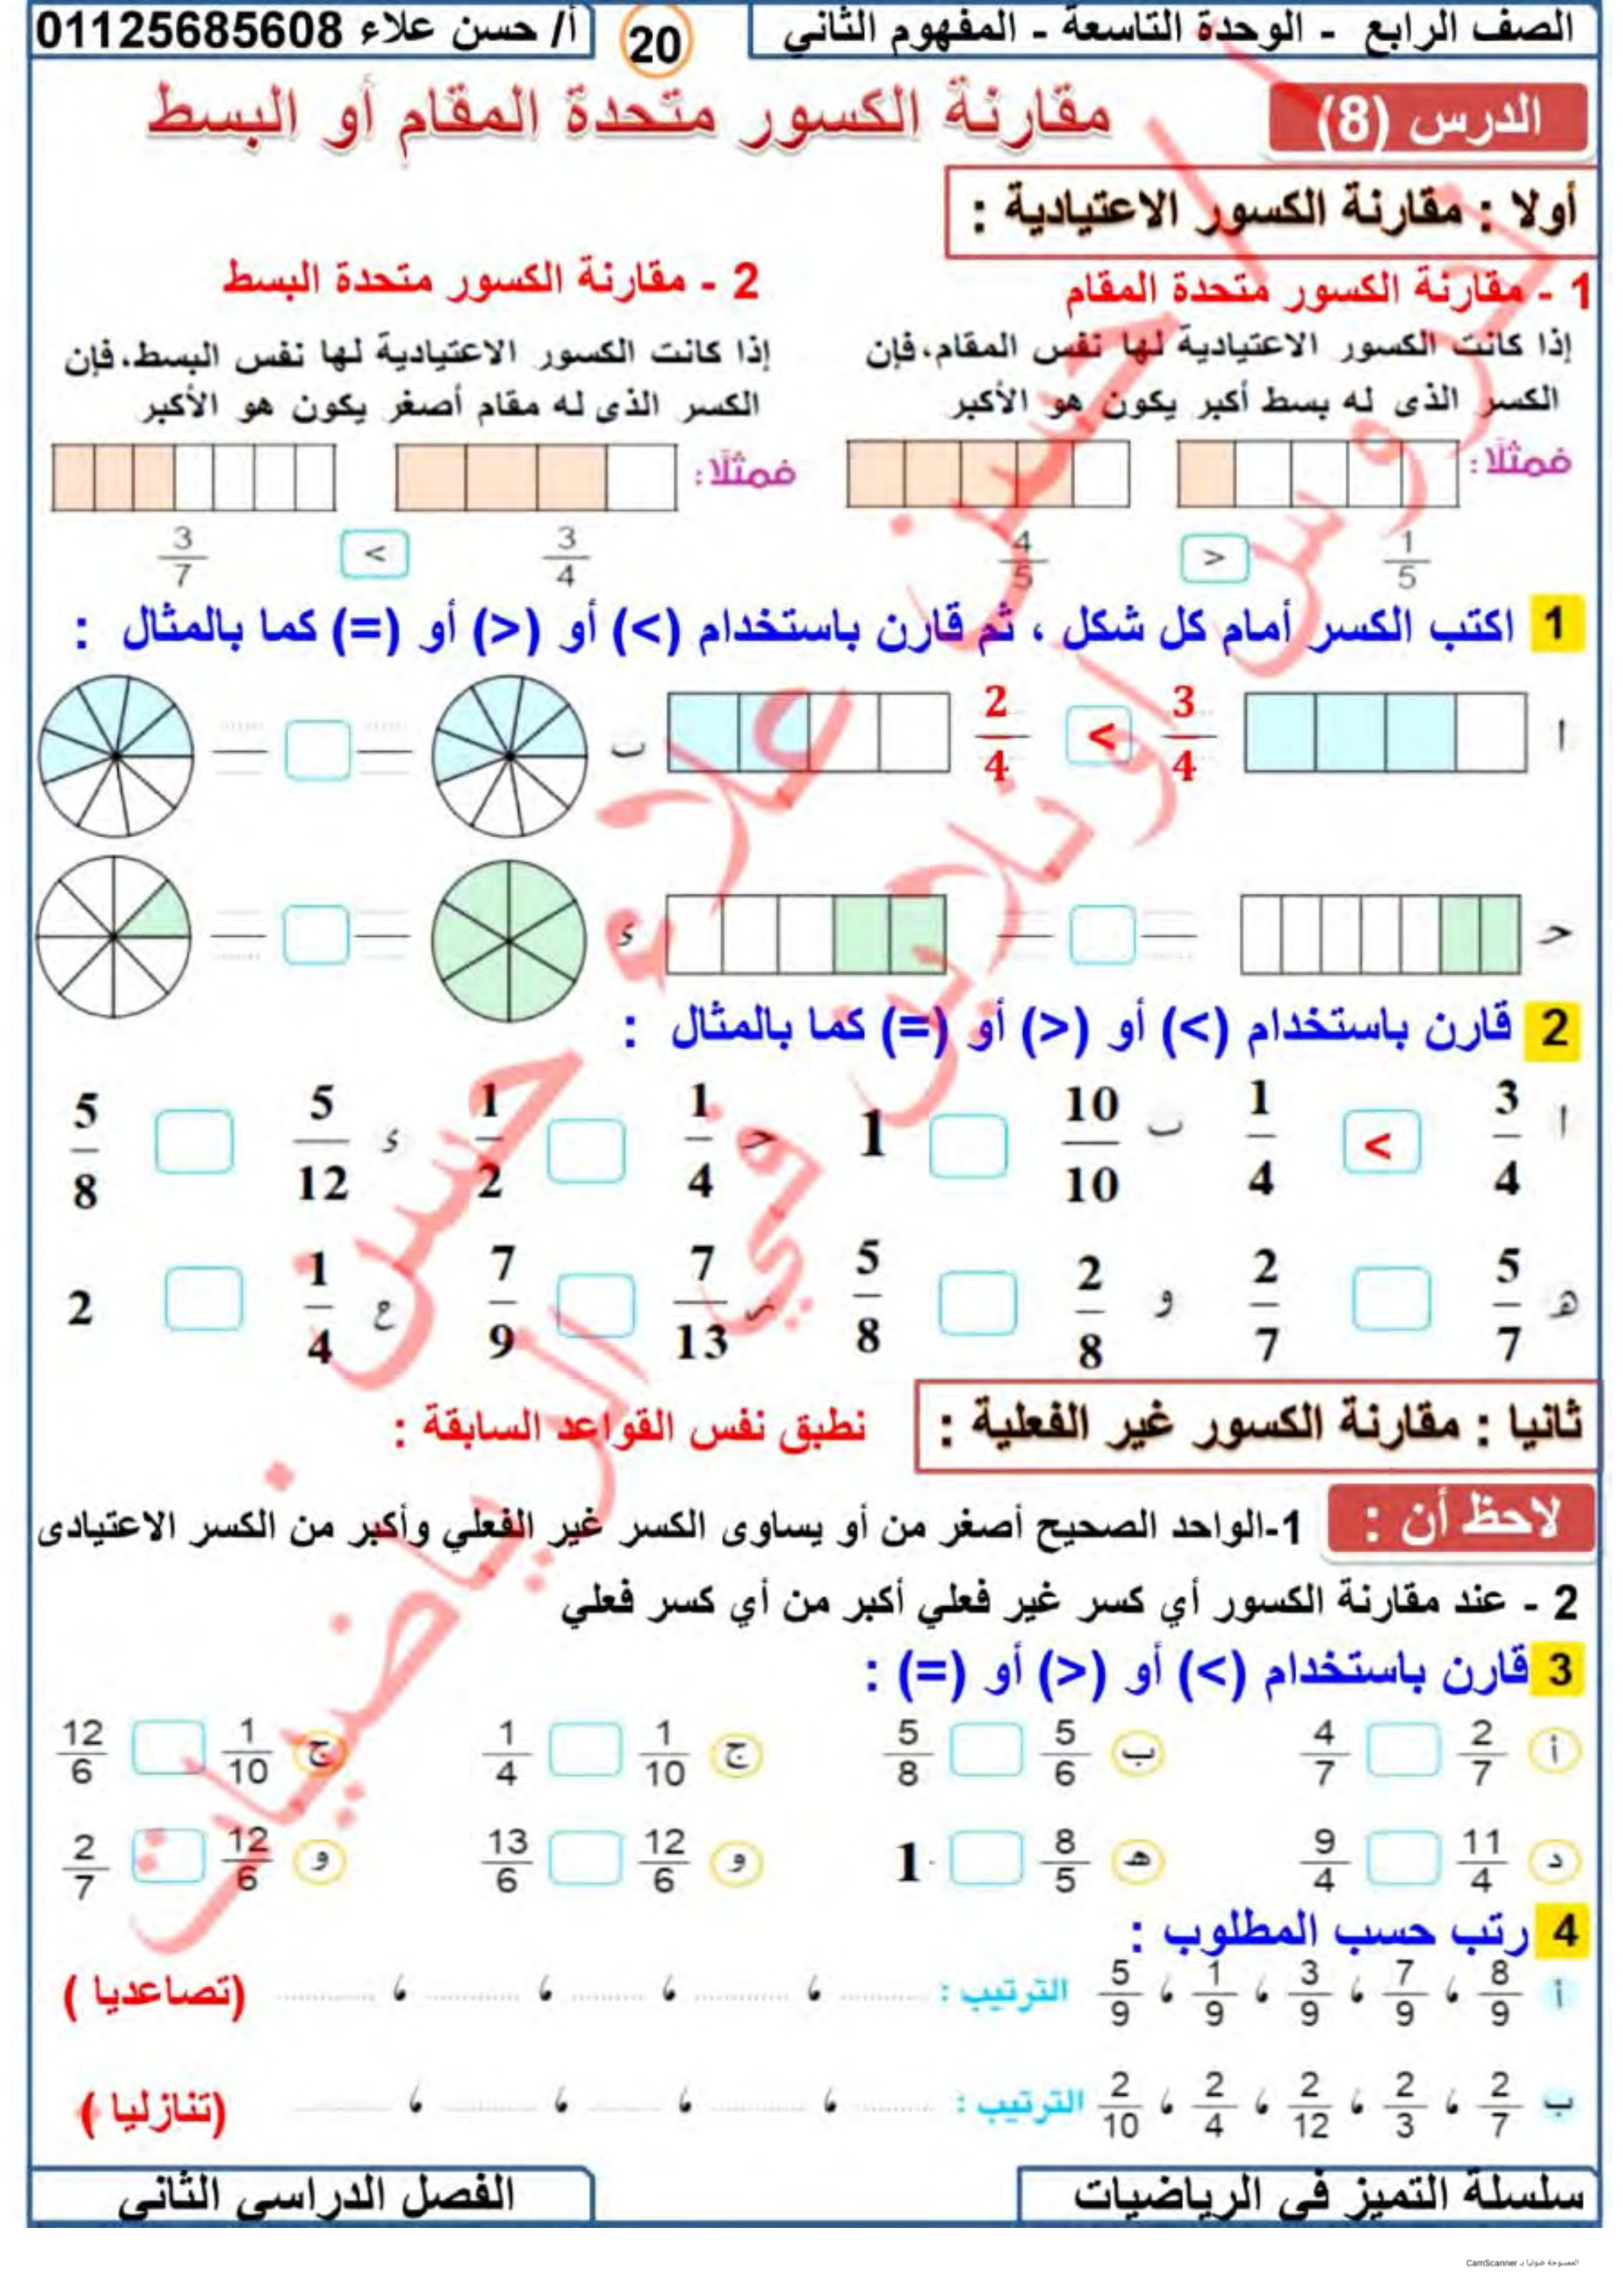 الصف الرابع - الوحدة التاسعة - المفهوم الثاني
20
أ/ حسن علاء 01125685608
الدرس (8)
مقارنة الكسور متحدة المقام أو البسط
أولا : مقارنة الكسور الاعتيادية :
1 - مقارنة الكسور متحدة المقام
إذا كانت الكسور الاعتيادية لها نفس المقام، فإن
الكسر الذى له بسط أكبر يكون هو الأكبر
فمثلًا:
1/5 < 4/5
2 - مقارنة الكسور متحدة البسط
إذا كانت الكسور الاعتيادية لها نفس البسط، فإن
الكسر الذى له مقام أصغر يكون هو الأكبر
فمثلًا:
3/4 > 3/7
1 اكتب الكسر أمام كل شكل ، ثم قارن باستخدام (>) أو (<) أو (=) كما بالمثال :
أ 3/4 > 2/4
ب
حـ
ء
2 قارن باستخدام (>) أو (<) أو (=) كما بالمثال :
أ 3/4 > 1/4
ب 10/10 1
حـ 1/4 1/2
ء 5/12 5/8
هـ 5/7 2/7
و 2/8 5/8
ر 7/13 7/9
ع 1/4 2
ثانيا : مقارنة الكسور غير الفعلية :
نطبق نفس القواعد السابقة :
لاحظ أن :
1-الواحد الصحيح أصغر من أو يساوى الكسر غير الفعلي وأكبر من الكسر الاعتيادى
2 - عند مقارنة الكسور أي كسر غير فعلي أكبر من أي كسر فعلي
3 قارن باستخدام (>) أو (<) أو (=) :
أ 2/7 4/7
ب 5/6 5/8
ج 1/10 1/4
ج 1/10 12/6
د 11/4 9/4
هـ 8/5 1
و 12/6 13/6
و 12/6 2/7
4 رتب حسب المطلوب :
أ 8/9 ، 7/9 ، 3/9 ، 1/9 ، 5/9 الترتيب : ........ ، ........ ، ........ ، ........ ، ........ (تصاعديا )
ب 2/7 ، 2/3 ، 2/12 ، 2/4 ، 2/10 الترتيب : ........ ، ........ ، ........ ، ........ ، ........ (تنازليا )
سلسلة التميز في الرياضيات
الفصل الدراسي الثاني
الممسوحة ضوئيا بـ CamScanner